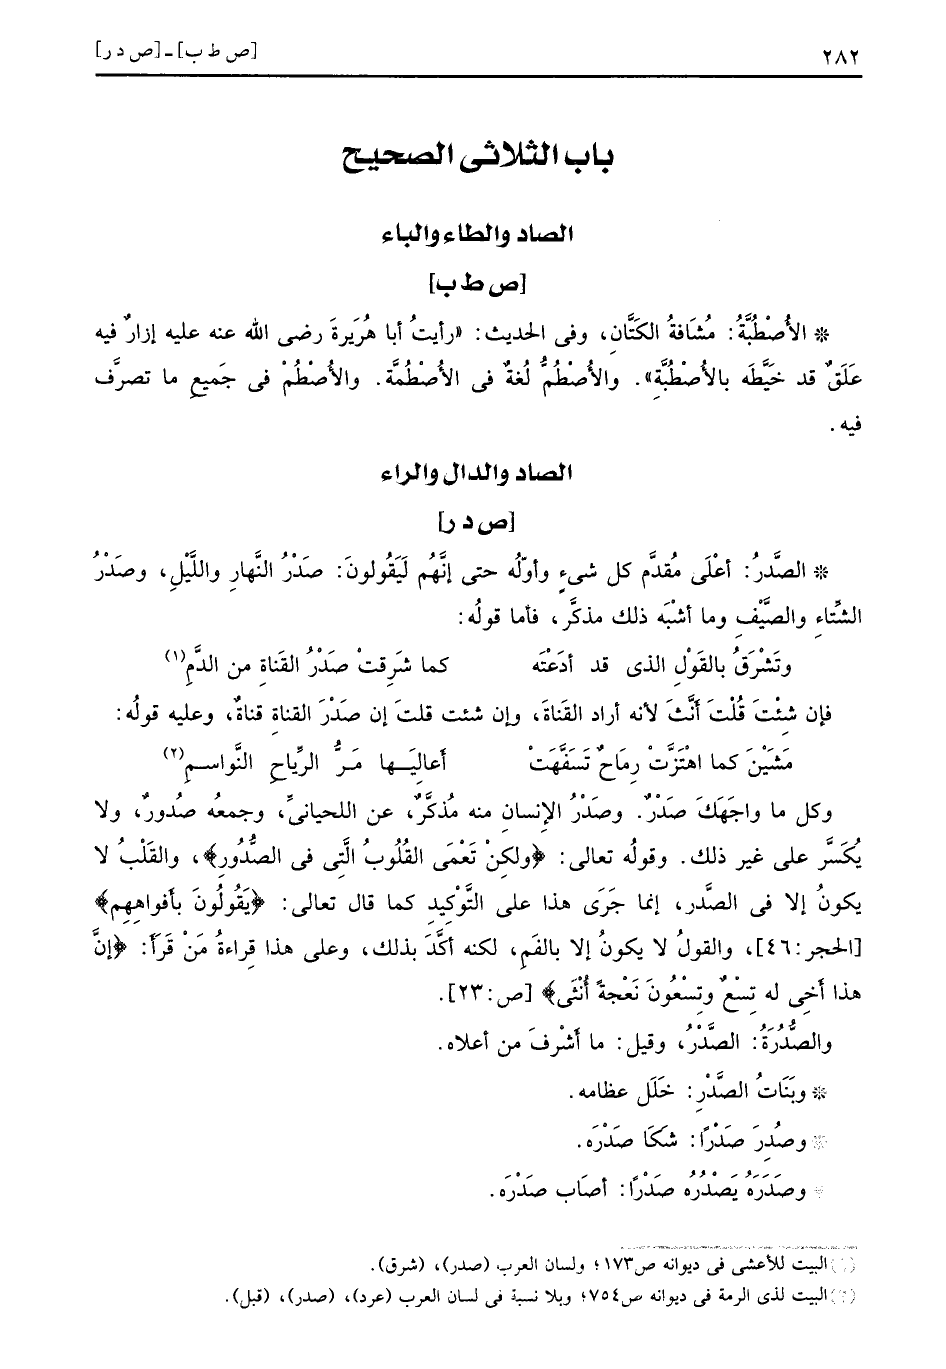 ٢٨٢
[ص ط ب] ـ [ص د ر]
باب الثلاثى الصحيح
الصاد والطاء والباء
[ص ط ب]
* الأُصْطُبَّةُ: مُشَافةُ الكَتَّانِ، وفى الحديث: «رأيتُ أبا هُرَيرةَ رضى الله عنه عليه إزارٌ فيه
عَلَقٌ قد خيَّطَه بالأُصْطُبَّةِ». والأُصْطُمُّ لُغةٌ فى الأُصْطُمَّة. والأُصْطُمْ فى جَميعِ ما تصرَّف
فيه.
الصاد والدال والراء
[ص د ر]
* الصَّدَّرُ: أعْلَى مُقدَّم كل شىءٍ وأوّلُه حتى إنَّهُم لَيَقُولونَ: صَدْرُ النَّهارِ واللَّيْلِ، وصَدْرُ
الشِّتاءِ والصَّيْفِ وما أشبْهَ ذلك مذكَّر، فأما قولُه:
وتَشْرَقُ بالقَوْلِ الذى قد أدَعْتَه كما شَرِقتْ صَدْرُ القَناةِ من الدَّمِ(١)
فإن شئْتَ قُلْتَ أنَّثَ لأنه أراد القَناةَ، وإن شئت قلتَ إن صَدْرَ القناةِ قناةٌ، وعليه قولُه:
مَشَيْنَ كما اهْتَزَّتْ رِماحٌ تَسَفَّهَتْ أعاليَـها مَرُّ الرِّياحِ النَّواسـمِ(٢)
وكل ما واجَهَكَ صَدْرٌ. وصَدْرُ الإنسانِ منه مُذكَّرٌ، عن اللحيانىِّ، وجمعُه صُدورٌ، ولا
يُكَسَّر على غير ذلك. وقولُه تعالى: ﴿ولكنْ تَعْمَى القُلُوبُ الَّتِى فى الصُّدُورِ﴾، والقَلْبُ لا
يكونُ إلا فى الصَّدر، إنما جَرَى هذا على التَّوْكيدِ كما قال تعالى: ﴿يَقُولُونَ بأفواهِهِم﴾
[الحجر:٤٦]، والقولُ لا يكونُ إلا بالفَمِ، لكنه أكَّدَ بذلك، وعلى هذا قِراءةُ مَنْ قَرَأَ: ﴿إنَّ
هذا أخِى له تِسْعٌ وتِسْعُونَ نَعْجةً أُنْثَى﴾ [ص:٢٣].
والصُّدُرَةُ: الصَّدْرُ، وقيل: ما أشْرفَ من أعلاه.
* وبَنَاتُ الصَّدْرِ: خَلَل عظامه.
* وصُدِرَ صَدْرًا: شكَا صَدْرَه.
* وصَدَرَهُ يَصْدُرُه صَدْرًا: أصَاب صَدْرَه.
(١) البيت للأعشى فى ديوانه ص١٧٣؛ ولسان العرب (صدر)، (شرق).
(٢) البيت لذى الرمة فى ديوانه ص٧٥٤؛ وبلا نسبة فى لسان العرب (عرد)، (صدر)، (قبل).